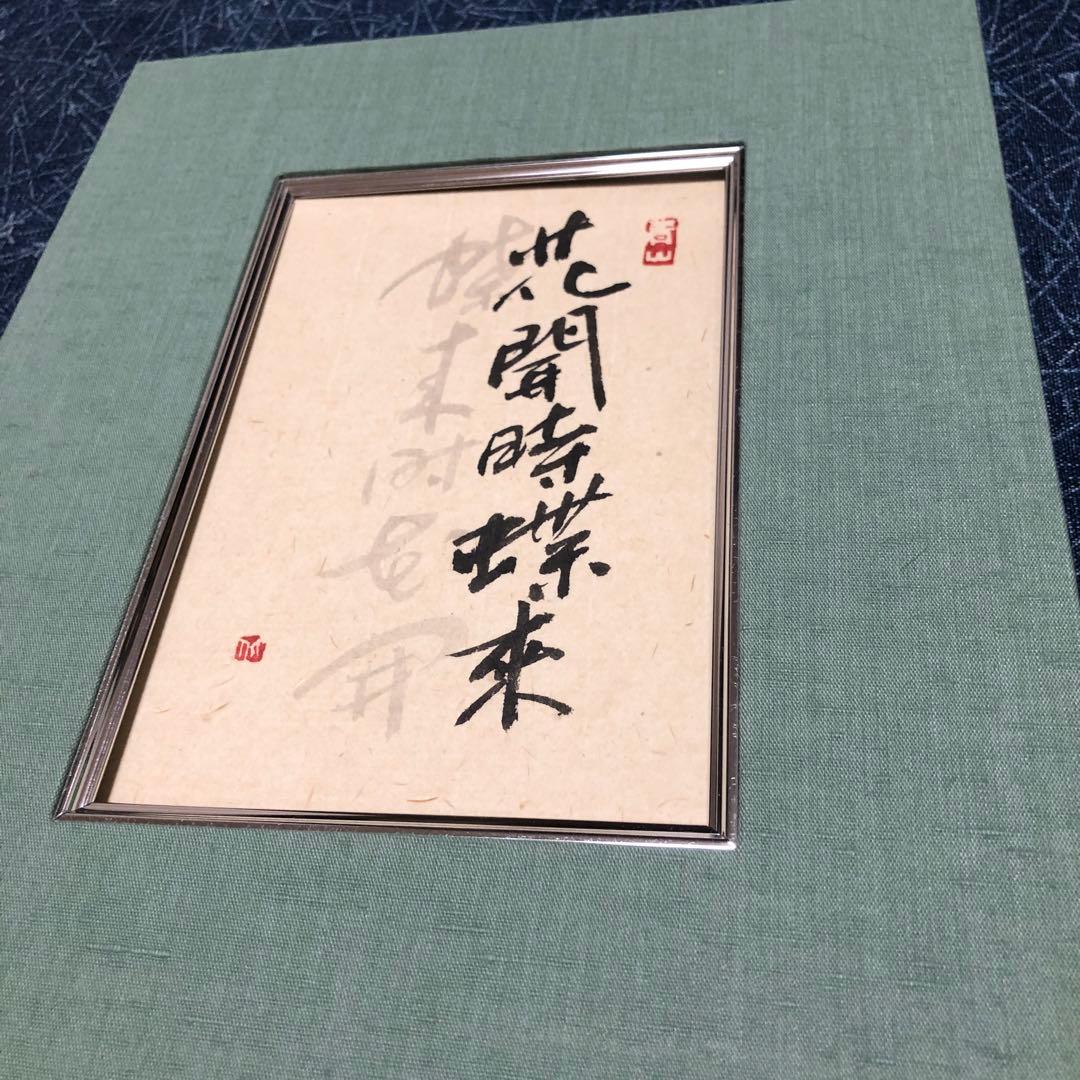 花開時蝶來
蝶来時花開